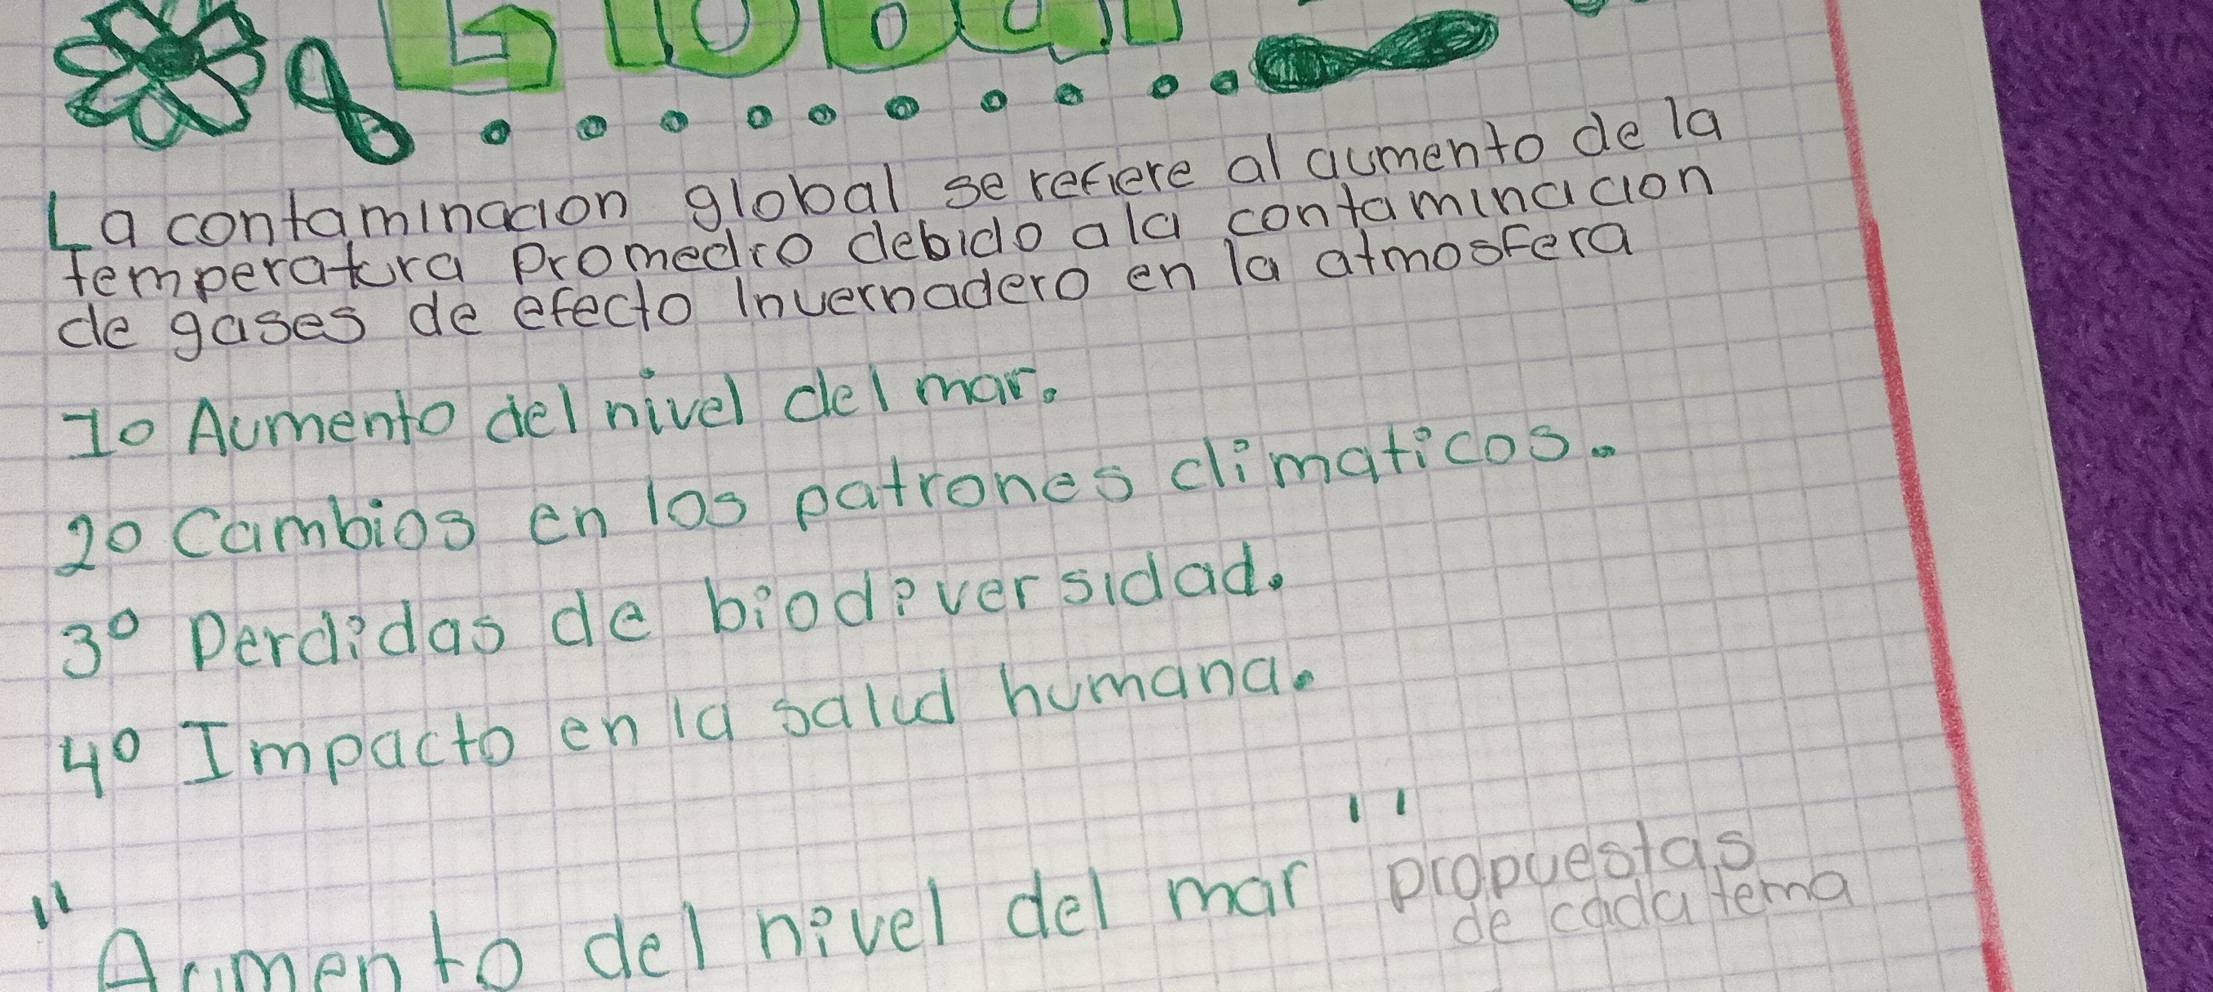 Global
La contaminacion global se refiere al aumento de la
temperatura promedio debido ala contaminacion
de gases de efecto Invernadero en la atmosfera
1o Aumento del nivel del mar.
2o Cambios en los patrones climaticos.
3º Perdidas de biodiversidad.
4º Impacto en la salud humana.
"Aumento del nivel del mar"
propuestas
de cada tema